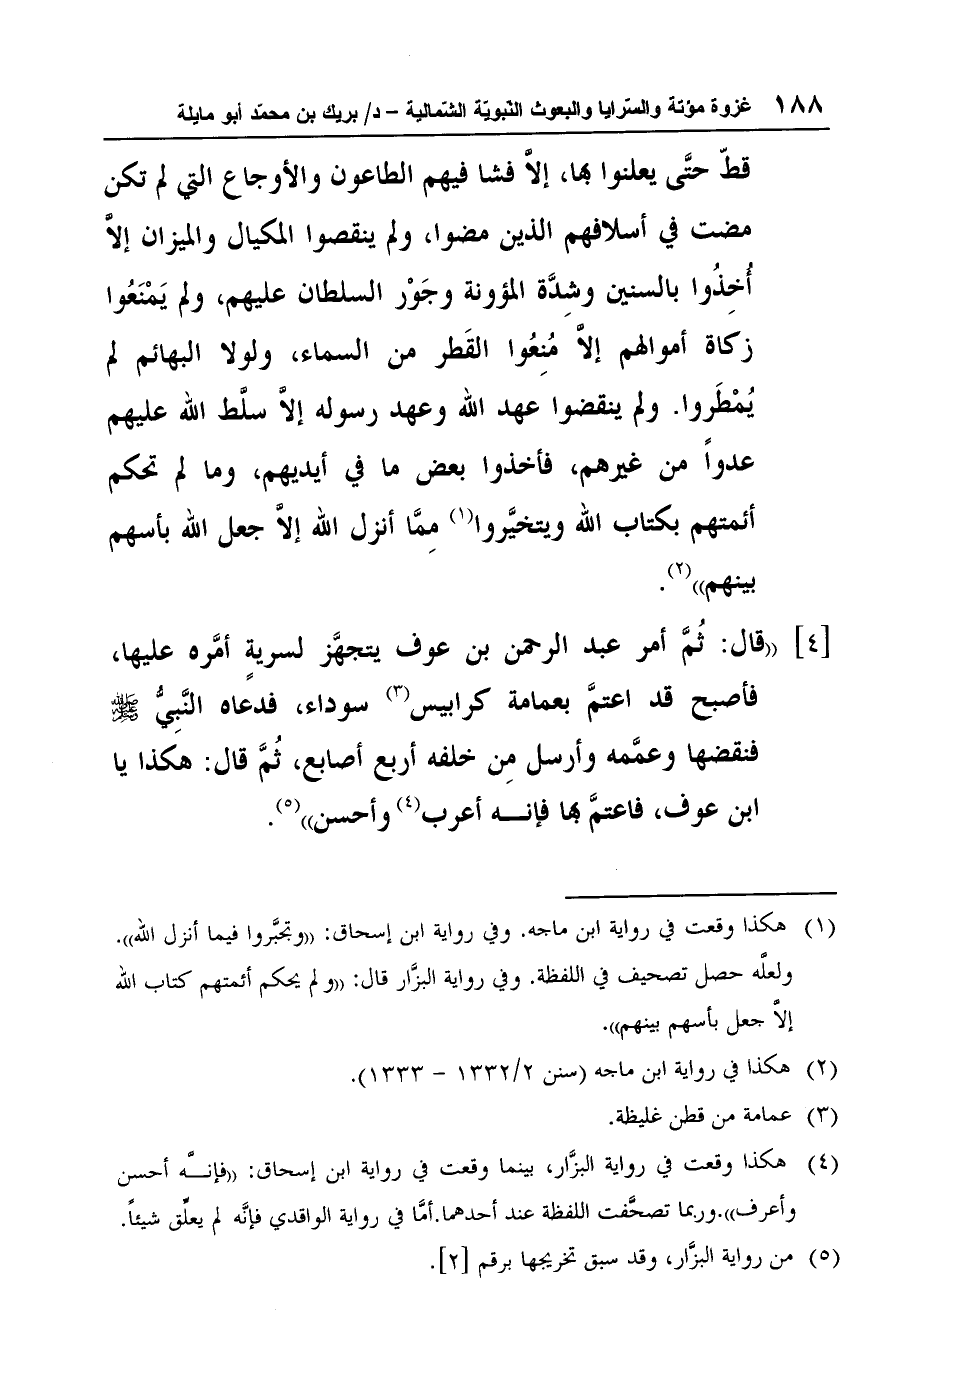 ١٨٨ غزوة مؤتة والسّرايا والبعوث النّبويّة الشّماليّة – د/ بريك بن محمّد أبو مايلة
قطّ حتَّى يعلنوا بها، إلاَّ فشا فيهم الطاعون والأوجاع التي لم تكن
مضت في أسلافهم الذين مضوا، ولم ينقصوا المكيال والميزان إلاَّ
أُخِذُوا بالسنين وشِدَّة المؤونة وجَوْر السلطان عليهم، ولم يَمْنَعُوا
زكاة أموالهم إلاَّ مُنِعُوا القَطر من السماء، ولولا البهائم لم
يُمْطَروا. ولم ينقضوا عهد الله وعهد رسوله إلاَّ سلَّط الله عليهم
عدواً من غيرهم، فأخذوا بعض ما في أيديهم، وما لم تحكم
أئمتهم بكتاب الله ويتخيَّروا(١) مِمَّا أنزل الله إلاَّ جعل الله بأسهم
بينهم))(٢).
[٤] ((قال: ثُمَّ أمر عبد الرحمن بن عوف يتجهَّز لسريةٍ أمَّره عليها،
فأصبح قد اعتمَّ بعمامة كرابيس(٣) سوداء، فدعاه النَّبِيُّ ﷺ
فنقضها وعمَّمه وأرسل مِن خلفه أربع أصابع، ثُمَّ قال: هكذا يا
ابن عوف، فاعتمَّ بها فإنـــه أعرب(٤) وأحسن))(٥).
(١) هكذا وقعت في رواية ابن ماجه. وفي رواية ابن إسحاق: ((وتجبَّروا فيما أنزل الله)).
ولعلَّه حصل تصحيف في اللفظة. وفي رواية البزَّار قال: ((ولم يحكم أئمتهم كتاب الله
إلاَّ جعل بأسهم بينهم)).
(٢) هكذا في رواية ابن ماجه (سنن ١٣٣٢/٢ – ١٣٣٣).
(٣) عمامة من قطن غليظة.
(٤) هكذا وقعت في رواية البزَّار، بينما وقعت في رواية ابن إسحاق: ((فإنـــَّه أحسن
وأعرف)).وربما تصحَّفت اللفظة عند أحدهما.أمَّا في رواية الواقدي فإنَّه لم يعلِّق شيئاً.
(٥) من رواية البزَّار، وقد سبق تخريجها برقم [٢].